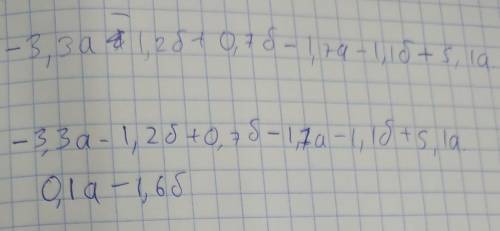 -3,3а - 1,2б + 0,7б - 1,7а - 1,1б + 5,1а
-3,3а - 1,2б + 0,7б - 1,7а - 1,1б + 5,1а.
0,1а - 1,6б